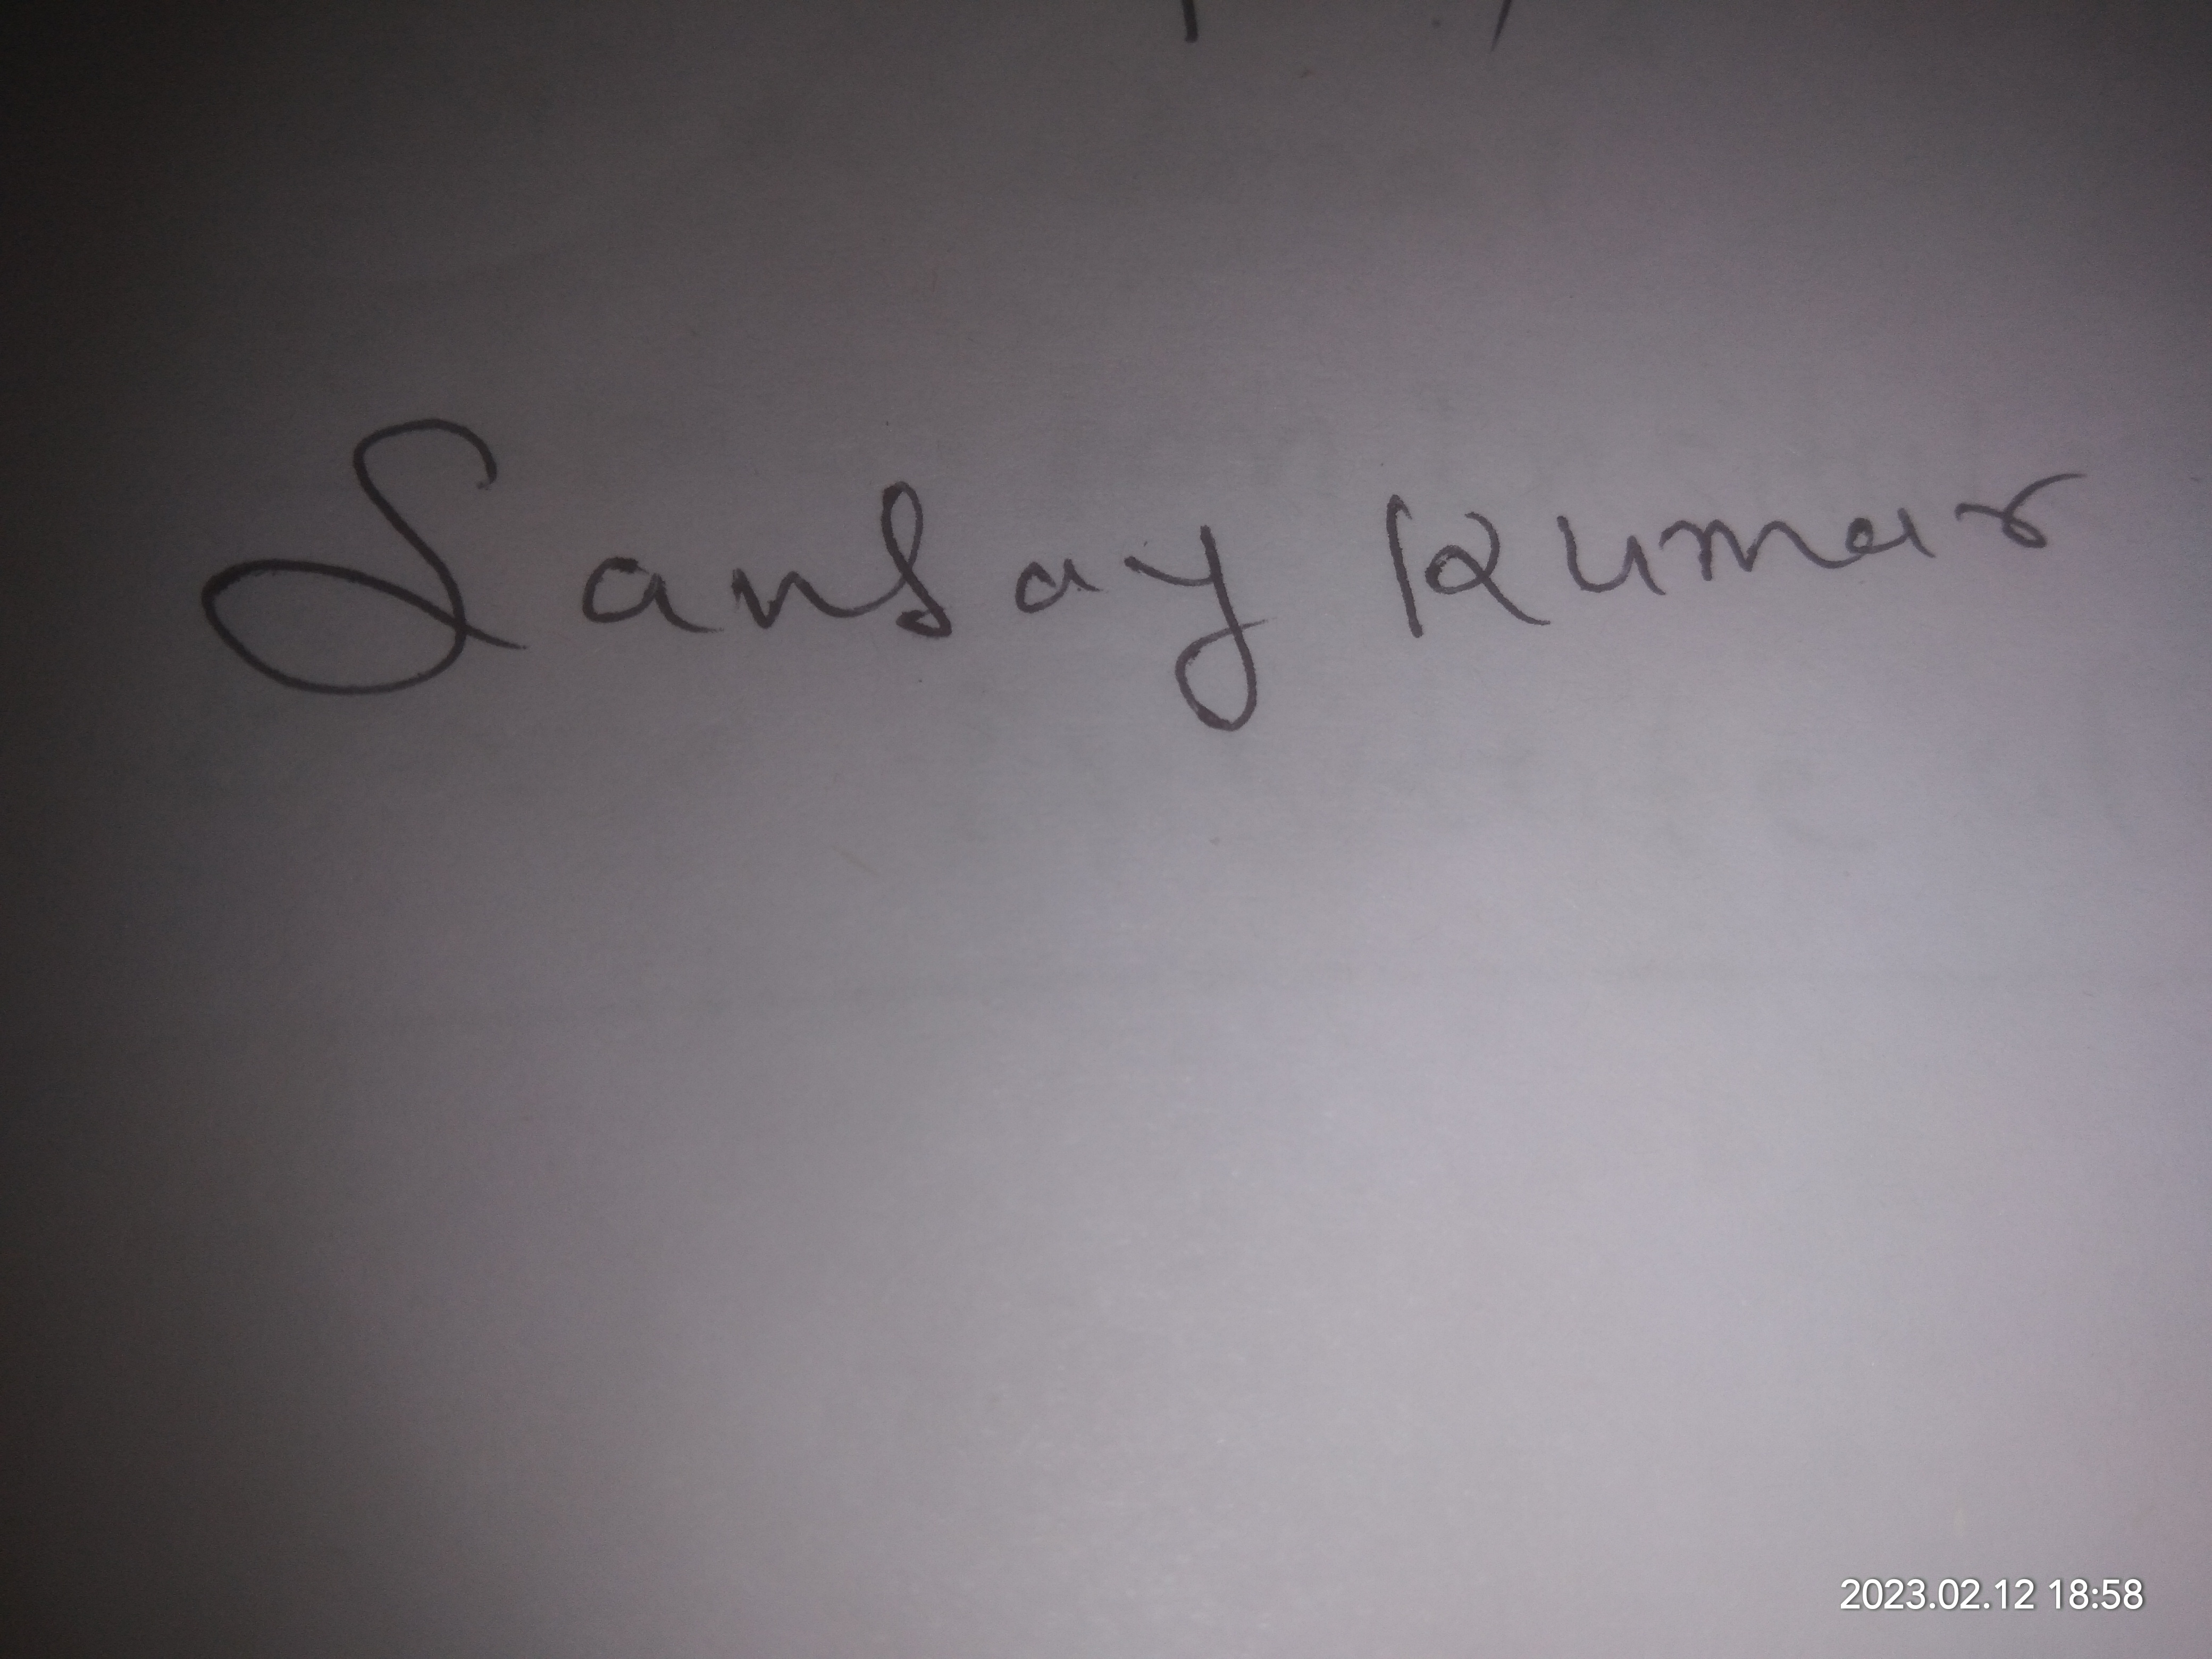 Sansay Kumar
2023.02.12 18:58